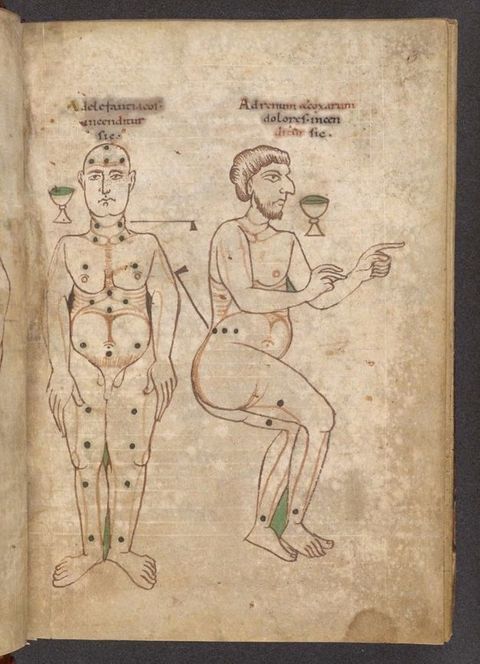 Adelefantiacos·
incenditur
sic·
Ad renum & coxarum
dolores· incen
ditur sic·